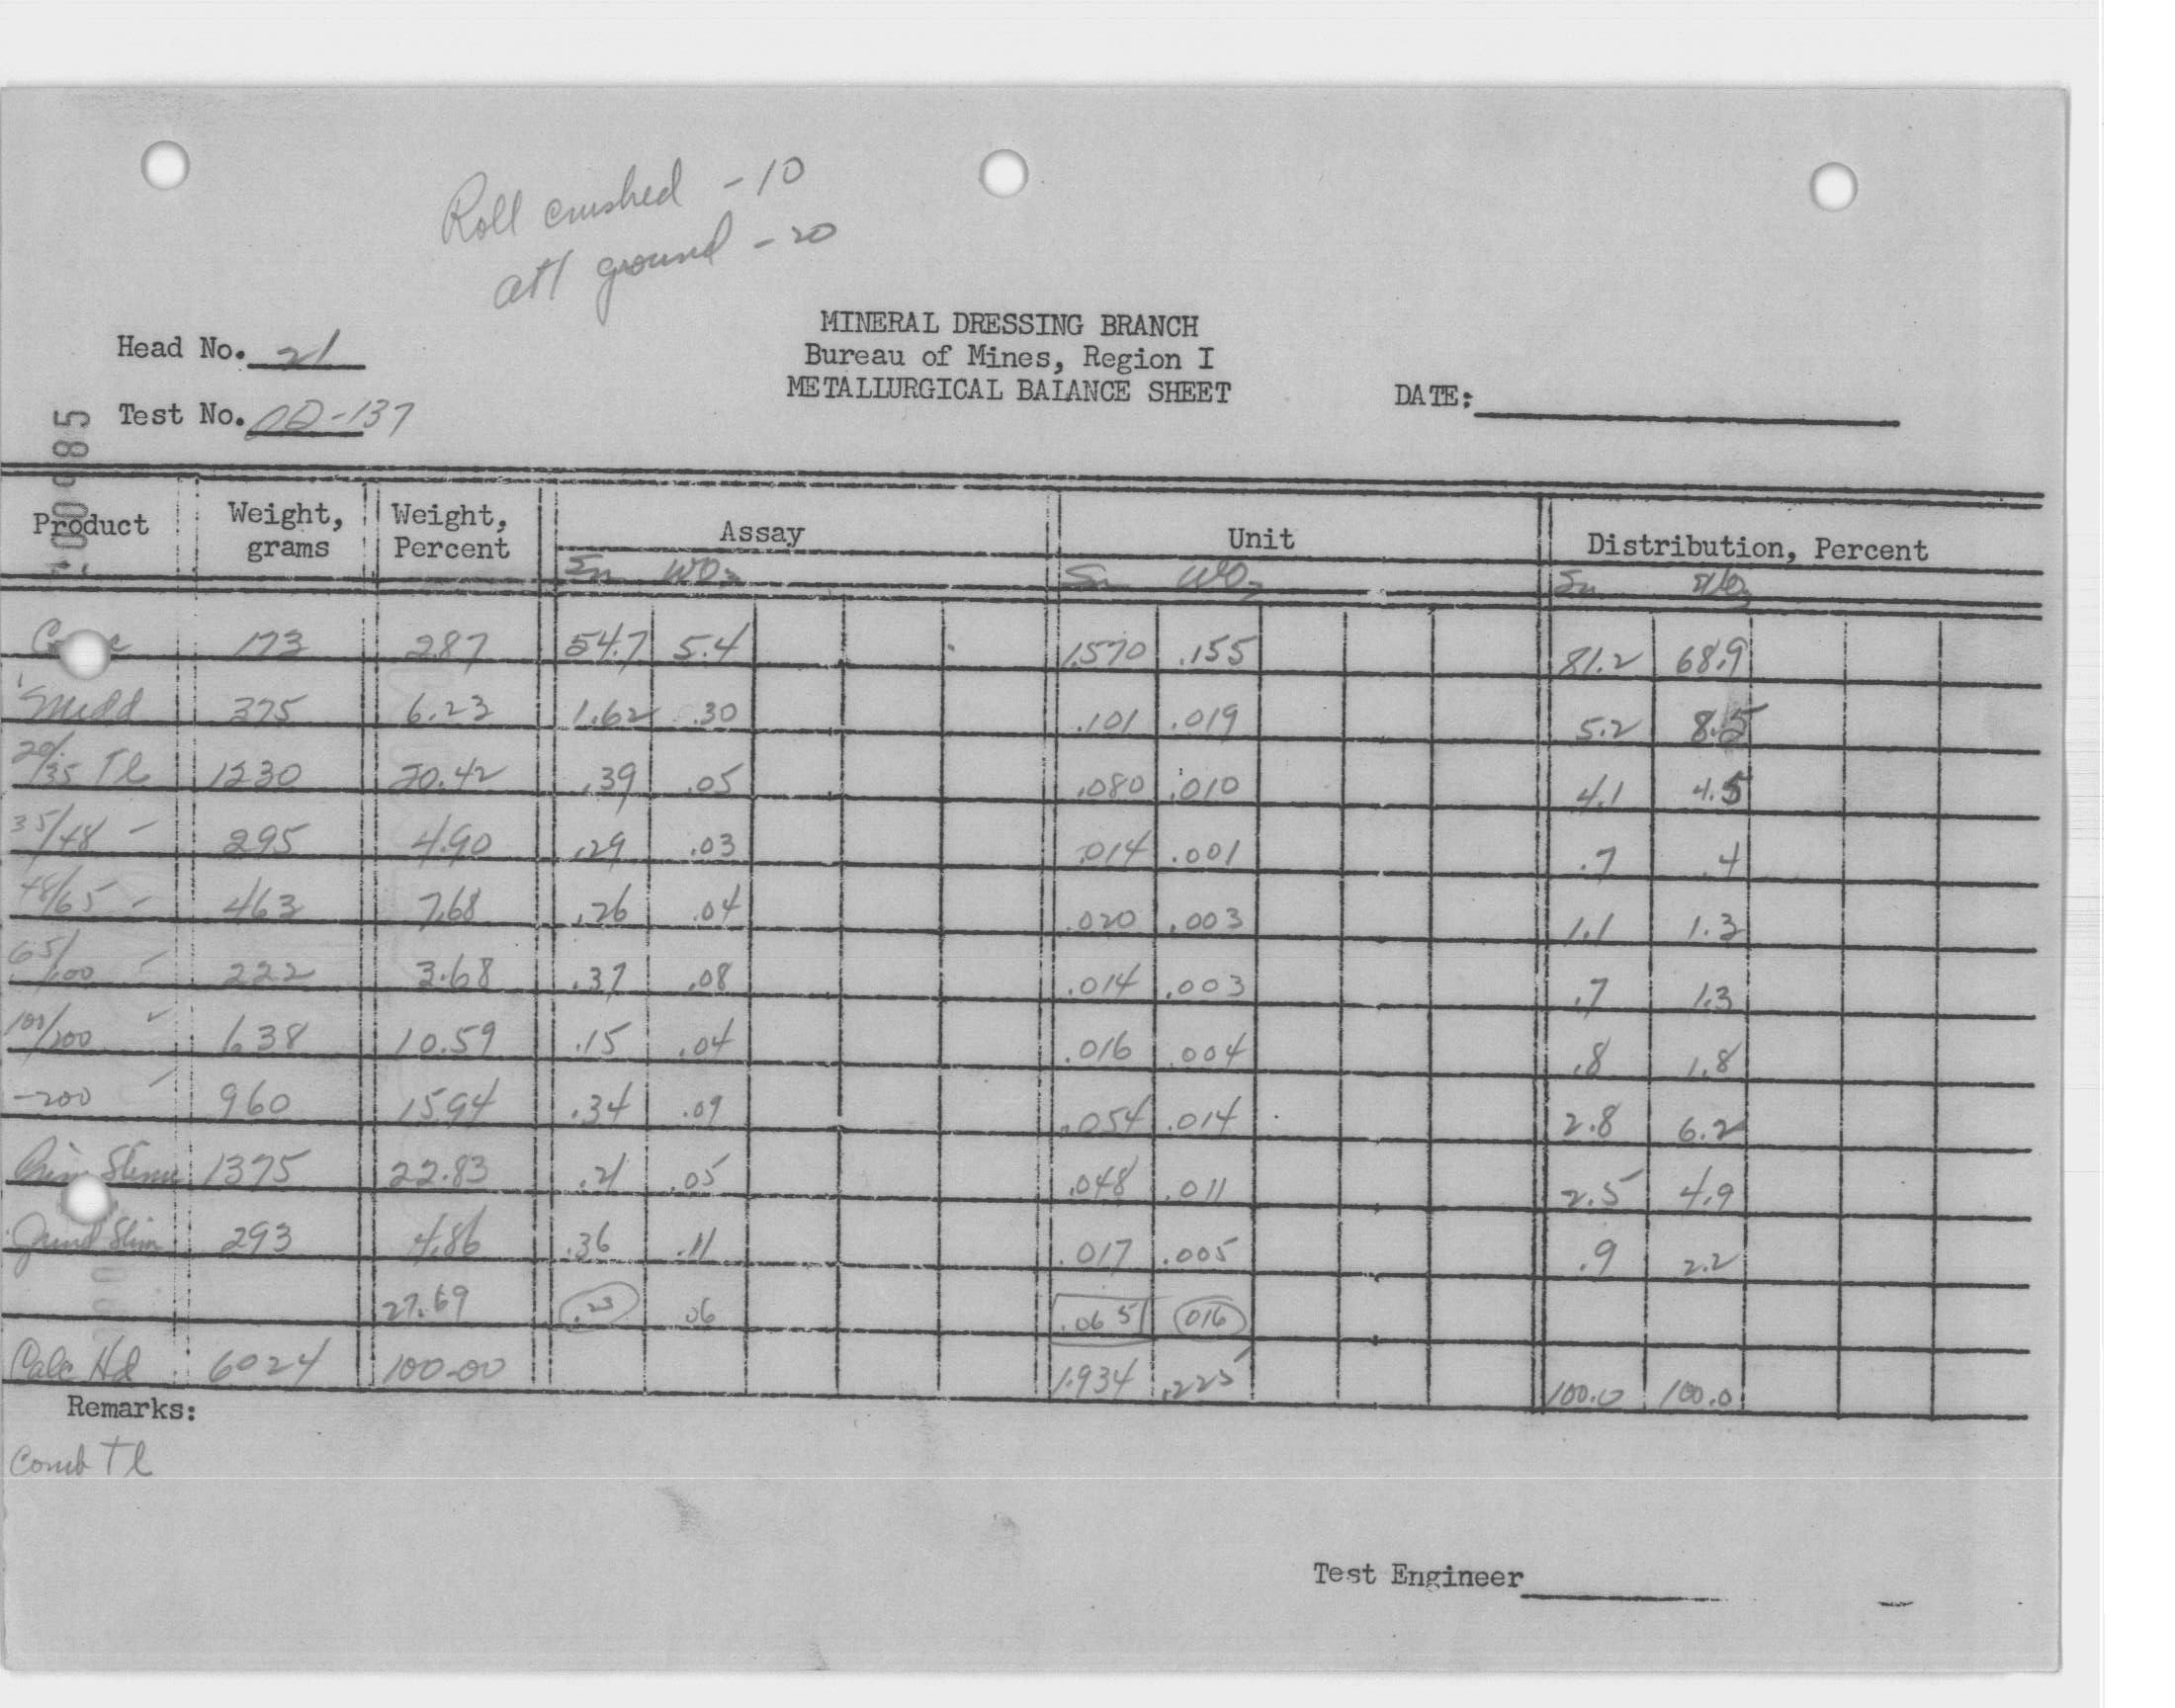 Roll crushed -10
att ground -20
MINERAL DRESSING BRANCH
Head No. 21
Bureau of Mines, Region I
METALLURGICAL BALANCE SHEET
DATE:
Test No. OD-137
Product Weight, grams Weight, Percent Assay Unit Distribution, Percent
Sn WO3 Sn WO3 Sn WO3
173 2.87 54.7 5.4 1.570 .155 81.2 68.9
Midd 375 6.23 1.62 .30 .101 .019 5.2 8.5
20/35 Tl 1230 20.42 .39 .05 .080 .010 4.1 4.5
35/48 - 295 4.90 .29 .03 .014 .001 .7 .4
48/65 - 463 7.68 .26 .04 .020 .003 1.1 1.3
65/100 - 222 3.68 .37 .08 .014 .003 .7 1.3
100/200 638 10.59 .15 .04 .016 .004 .8 1.8
-200 960 15.94 .34 .09 .054 .014 2.8 6.2
Prim Slime 1375 22.83 .21 .05 .048 .011 2.5 4.9
Grind Slim 293 4.86 .36 .11 .017 .005 .9 2.2
27.69 .23 .06 .065 .016
Calc Hd 6024 100.00 1.934 .225 100.0 100.0
Remarks:
Comb Tl
Test Engineer